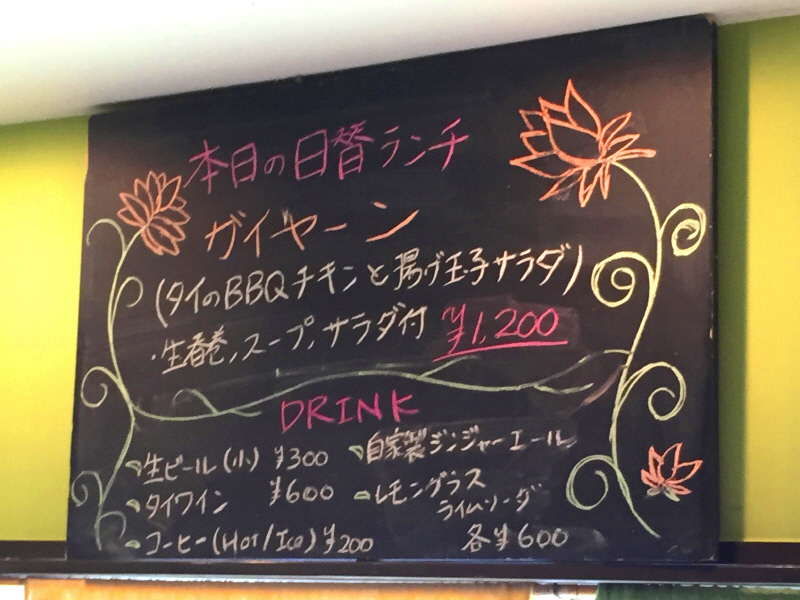 本日の日替ランチ
ガイヤーン
(タイのBBQチキンと揚げ玉子サラダ)
・生春巻,スープ,サラダ付 ¥1,200
DRINK
生ビール(小) ¥300
タイワイン ¥600
コーヒー(Hot/Ice) ¥200
自家製ジンジャーエール
レモングラス
ライムソーダ
各¥600